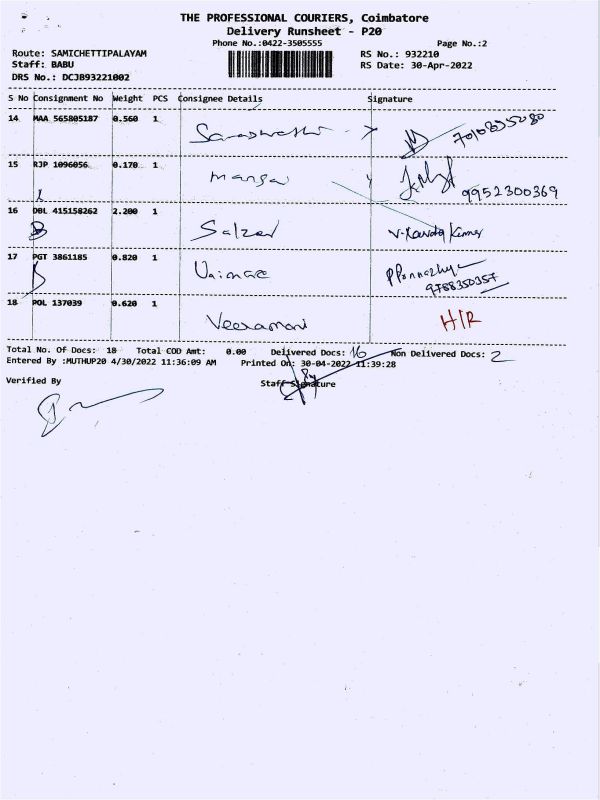 THE PROFESSIONAL COURIERS, Coimbatore
Delivery Runsheet - P20
Phone No.:0422-3505555 Page No.:2
Route: SAMICHETTIPALAYAM RS No.: 932210
Staff: BABU RS Date: 30-Apr-2022
DRS No.: DCJB93221002
S No Consignment No Weight PCS Consignee Details Signature
14 MAA 565805187 0.560 1 Saraswathi
15 RJP 1096056 0.170 1 mangai 9952300369
16 DBL 415158262 2.200 1 Salzer
17 PGT 3861185 0.820 1 9788350357
18 POL 137039 0.620 1 Veeramani H/R
Total No. Of Docs: 18 Total COD Amt: 0.00 Delivered Docs: 16 Non Delivered Docs: 2
Entered By :MUTHUP20 4/30/2022 11:36:09 AM Printed On: 30-04-2022 11:39:28
Verified By Staff Signature